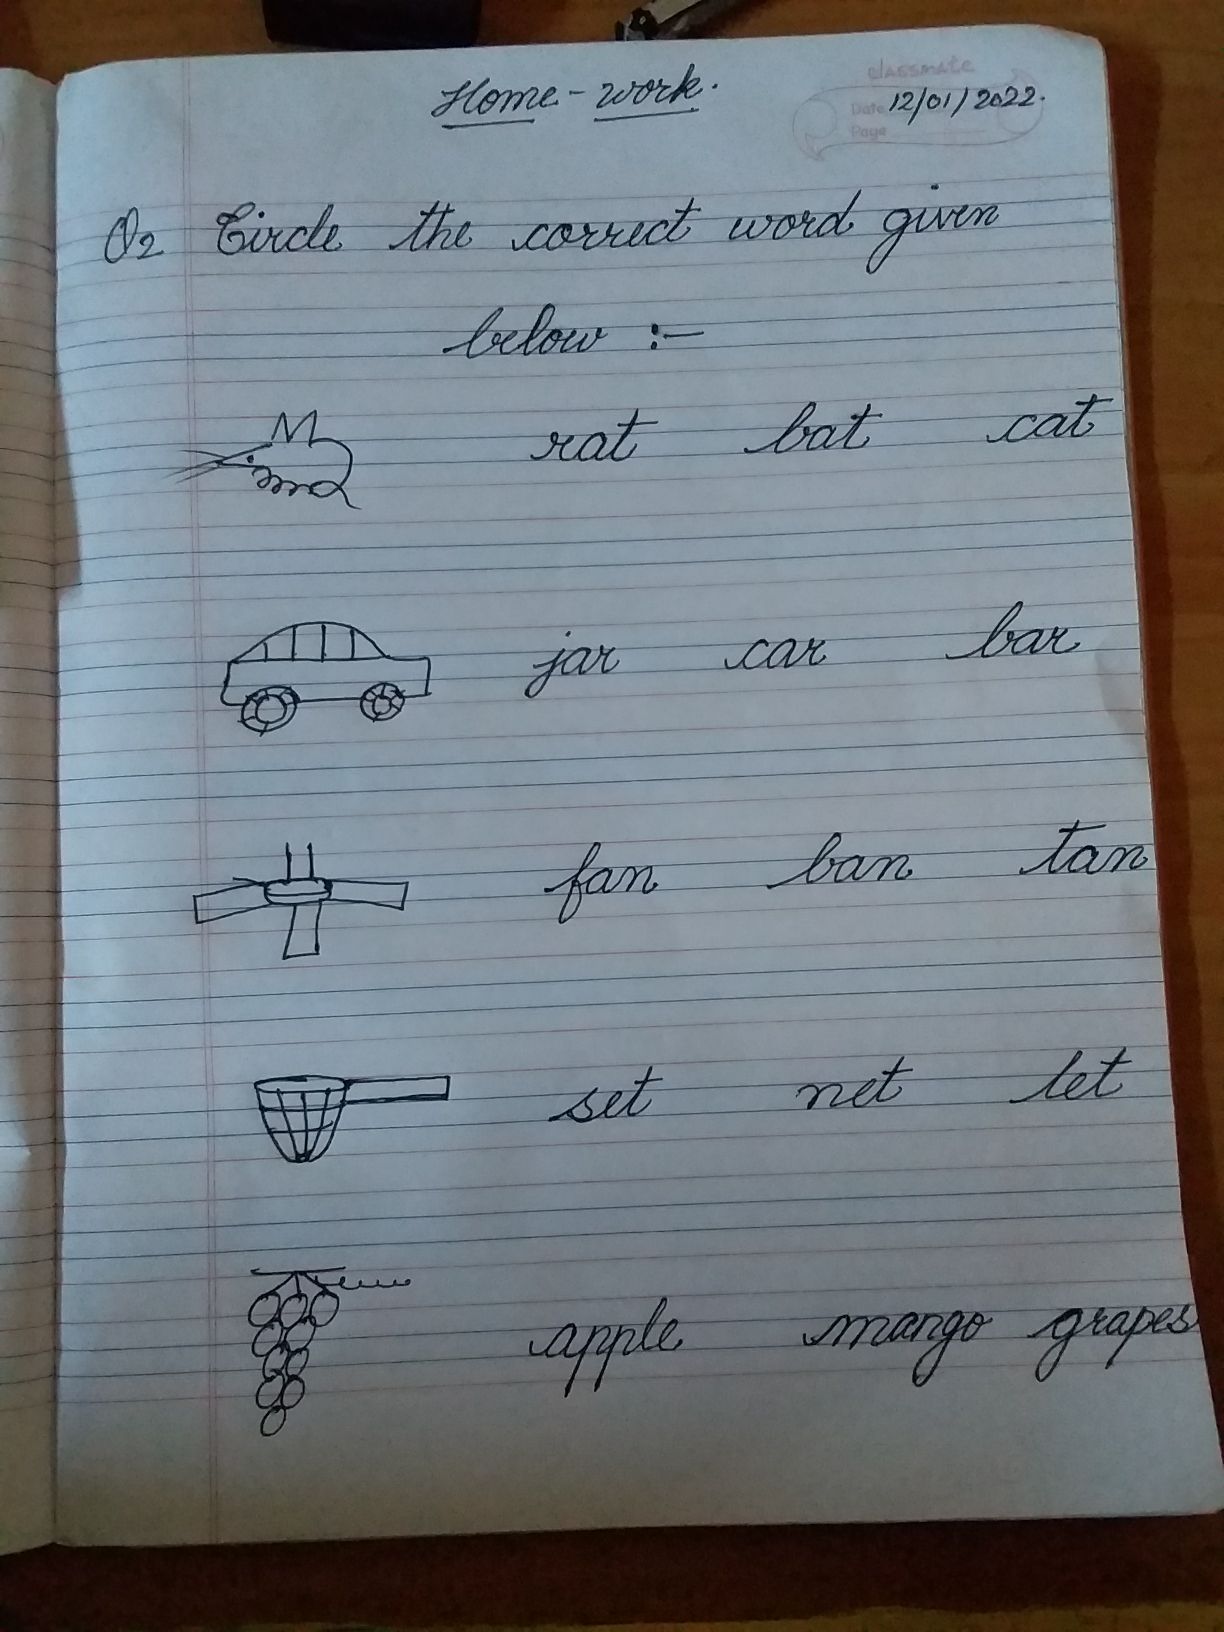 Home-work.
classmate
Date 12/01/2022.
Page
Q2 Circle the correct word given
below :-
rat bat cat
jar car bar
fan ban tan
set net let
apple mango grapes